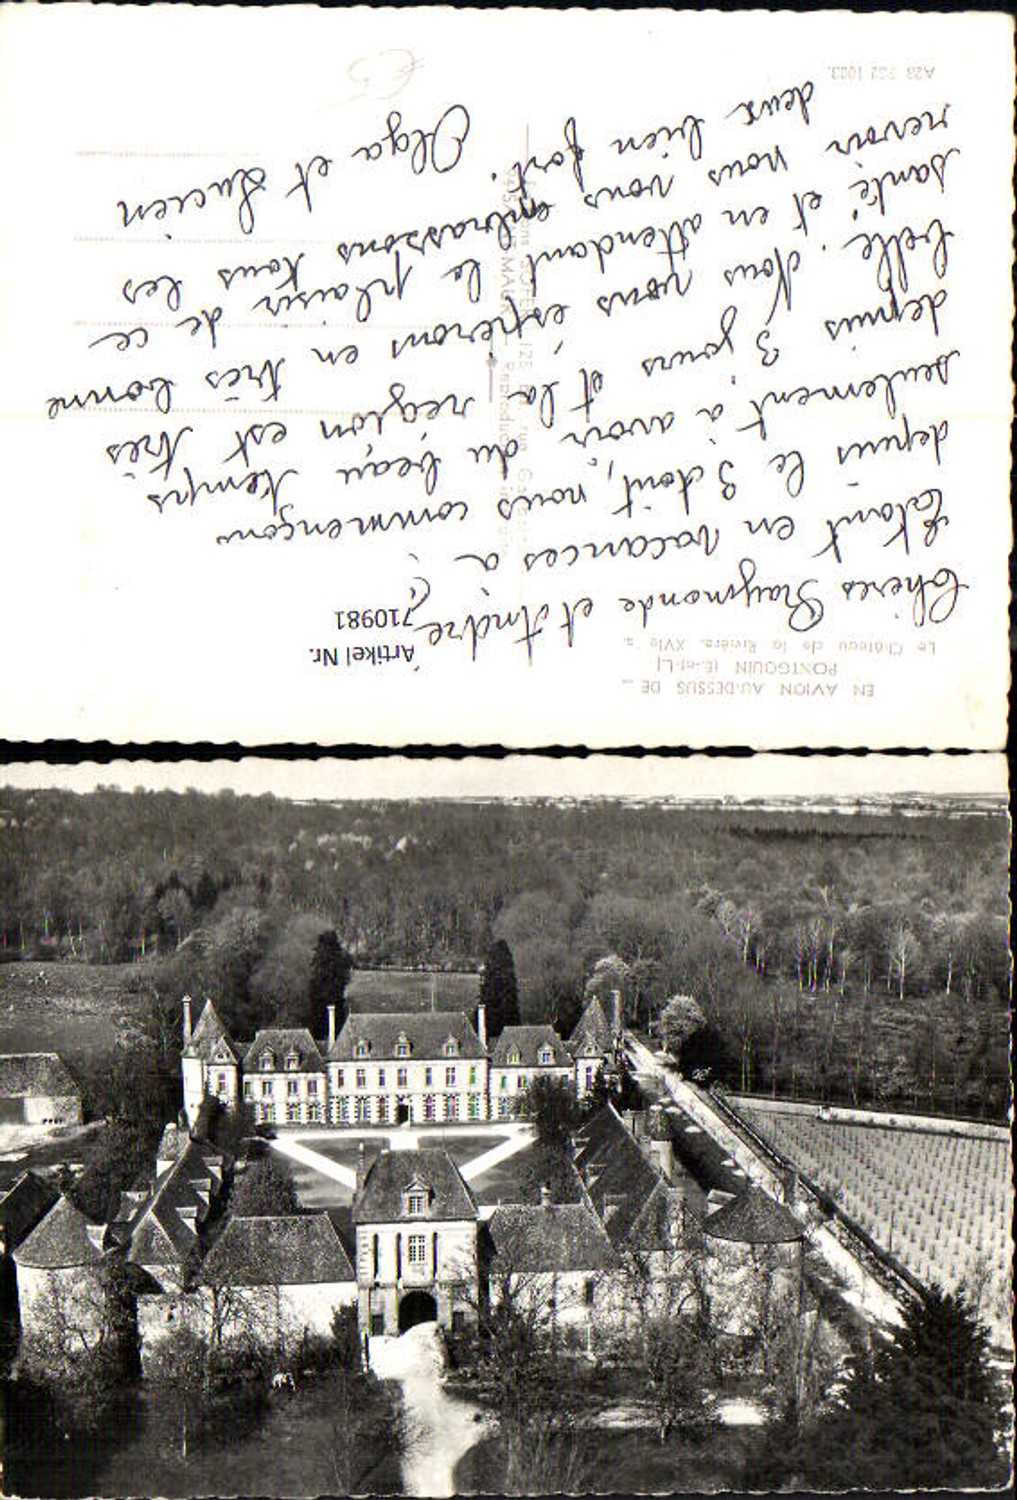 EN AVION AU-DESSUS DE ...
PONTGOUIN (E.-et-L.)
Le Château de la Rivière. XVIe s.
Artikel Nr.
710981
Chères Raymonde et Andre,
Etant en vacances à
depuis le 3 Août, nous commençons
seulement à avoir du beau temps
depuis 3 jours et la région est très
belle. Nous vous éspérons en très bonne
santé et en attendant le plaisir de ce
revoir nous vous embrassons tous les
deux bien fort. Olga et Lucien
A28 1023.
£5